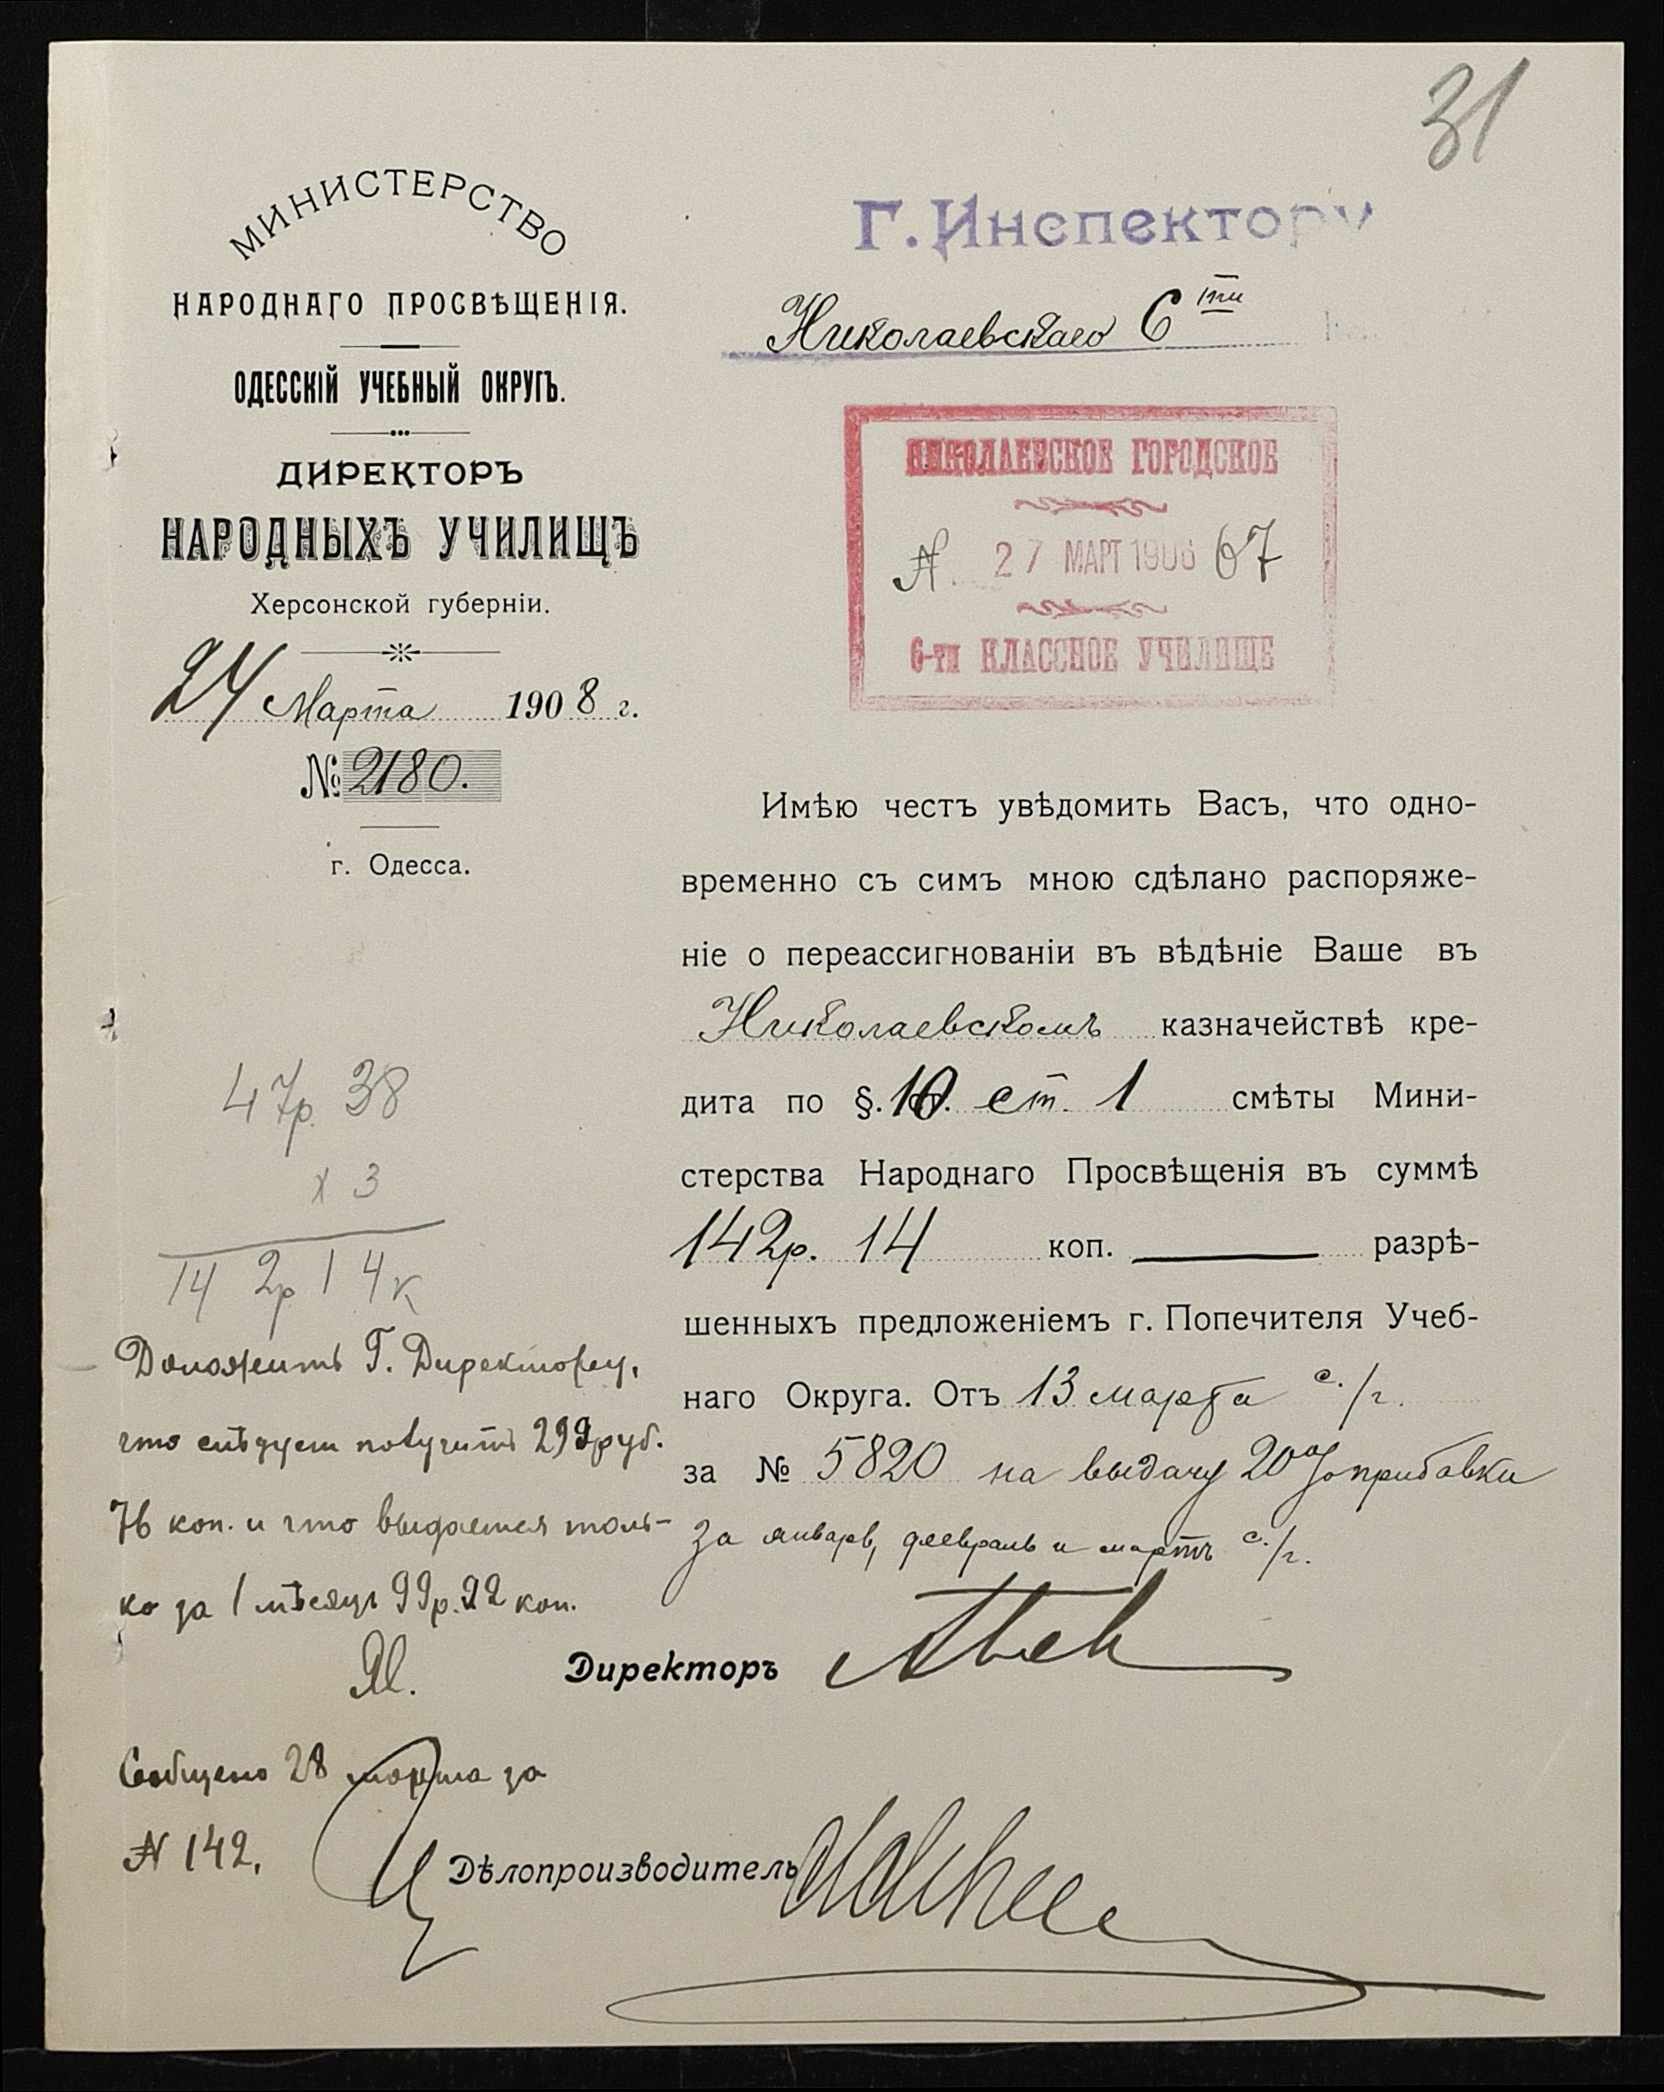 31
МИНИСТЕРСТВО
НАРОДНАГО ПРОСВѢЩЕНІЯ.
ОДЕССКІЙ УЧЕБНЫЙ ОКРУГЪ.
ДИРЕКТОРЪ
НАРОДНЫХЪ УЧИЛИЩЪ
Херсонской губерніи.
24 Марта 1908 г.
№ 2180.
г. Одесса.
Г. Инспектору
Николаевскаго 6ти
НИКОЛАЕВСКОЕ ГОРОДСКОЕ
№ 27 МАРТ 1908 67
6-ти КЛАССНОЕ УЧИЛИЩЕ
Имѣю честъ увѣдомить Васъ, что одно-
временно съ симъ мною сдѣлано распоряже-
ніе о переассигнованіи въ вѣдѣніе Ваше въ
Николаевскомъ казначействѣ кре-
дита по §. 10. ст. 1 смѣты Мини-
стерства Народнаго Просвѣщенія въ суммѣ
142р. 14 коп. разрѣ-
шенныхъ предложеніемъ г. Попечителя Учеб-
наго Округа. Отъ 13 марта с./г.
за № 5820 на выдачу 20% прибавки
за январь, февраль и мартъ с./г.
Директоръ
Дѣлопроизводитель
47р. 38
х 3
142р 14к
Доложить Г. Директору,
что слѣдует получить 299 руб.
76 коп. и что выдается толь-
ко за 1 мѣсяцъ 99р. 92 коп.
Сообщено 28 марта за
№ 142.